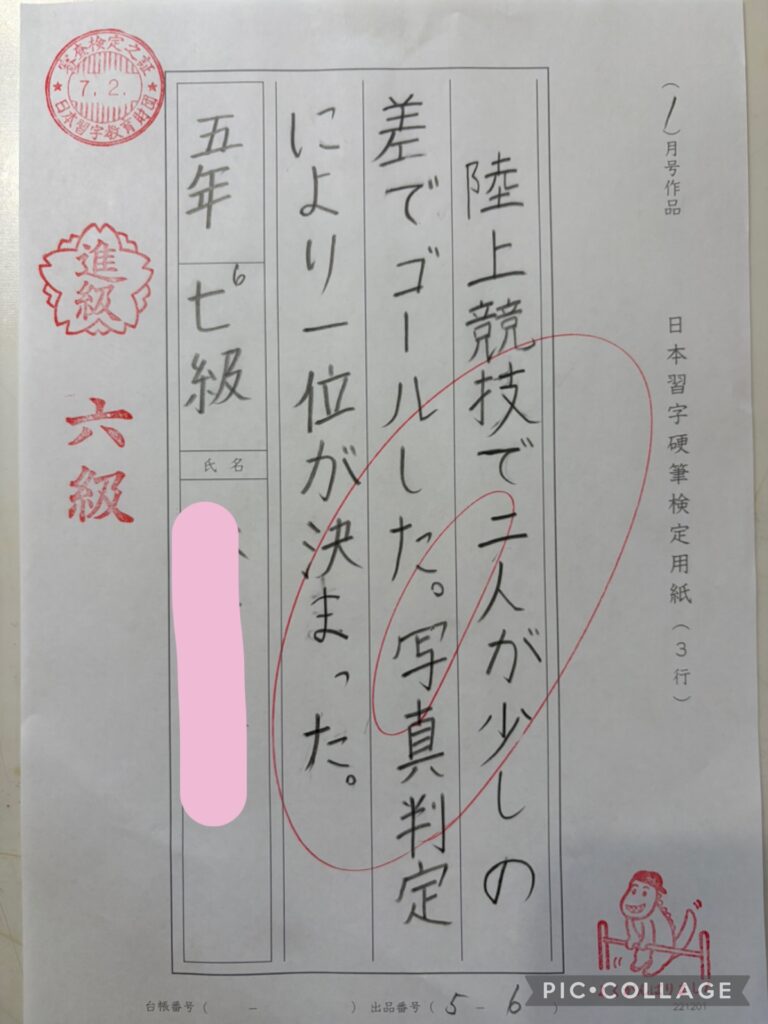 (1)月号作品
日本習字硬筆検定用紙(3行)
陸上競技で二人が少しの
差でゴールした。写真判定
により一位が決まった。
五年
七級
6
氏名
審査検定之証
7.2.
日本習字教育財団
進級
六級
台帳番号( － ) 出品番号(5－6)
PIC•COLLAGE
221201